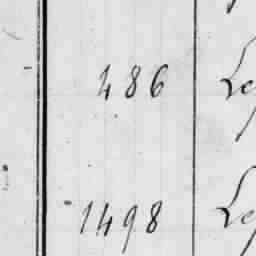 486
1498